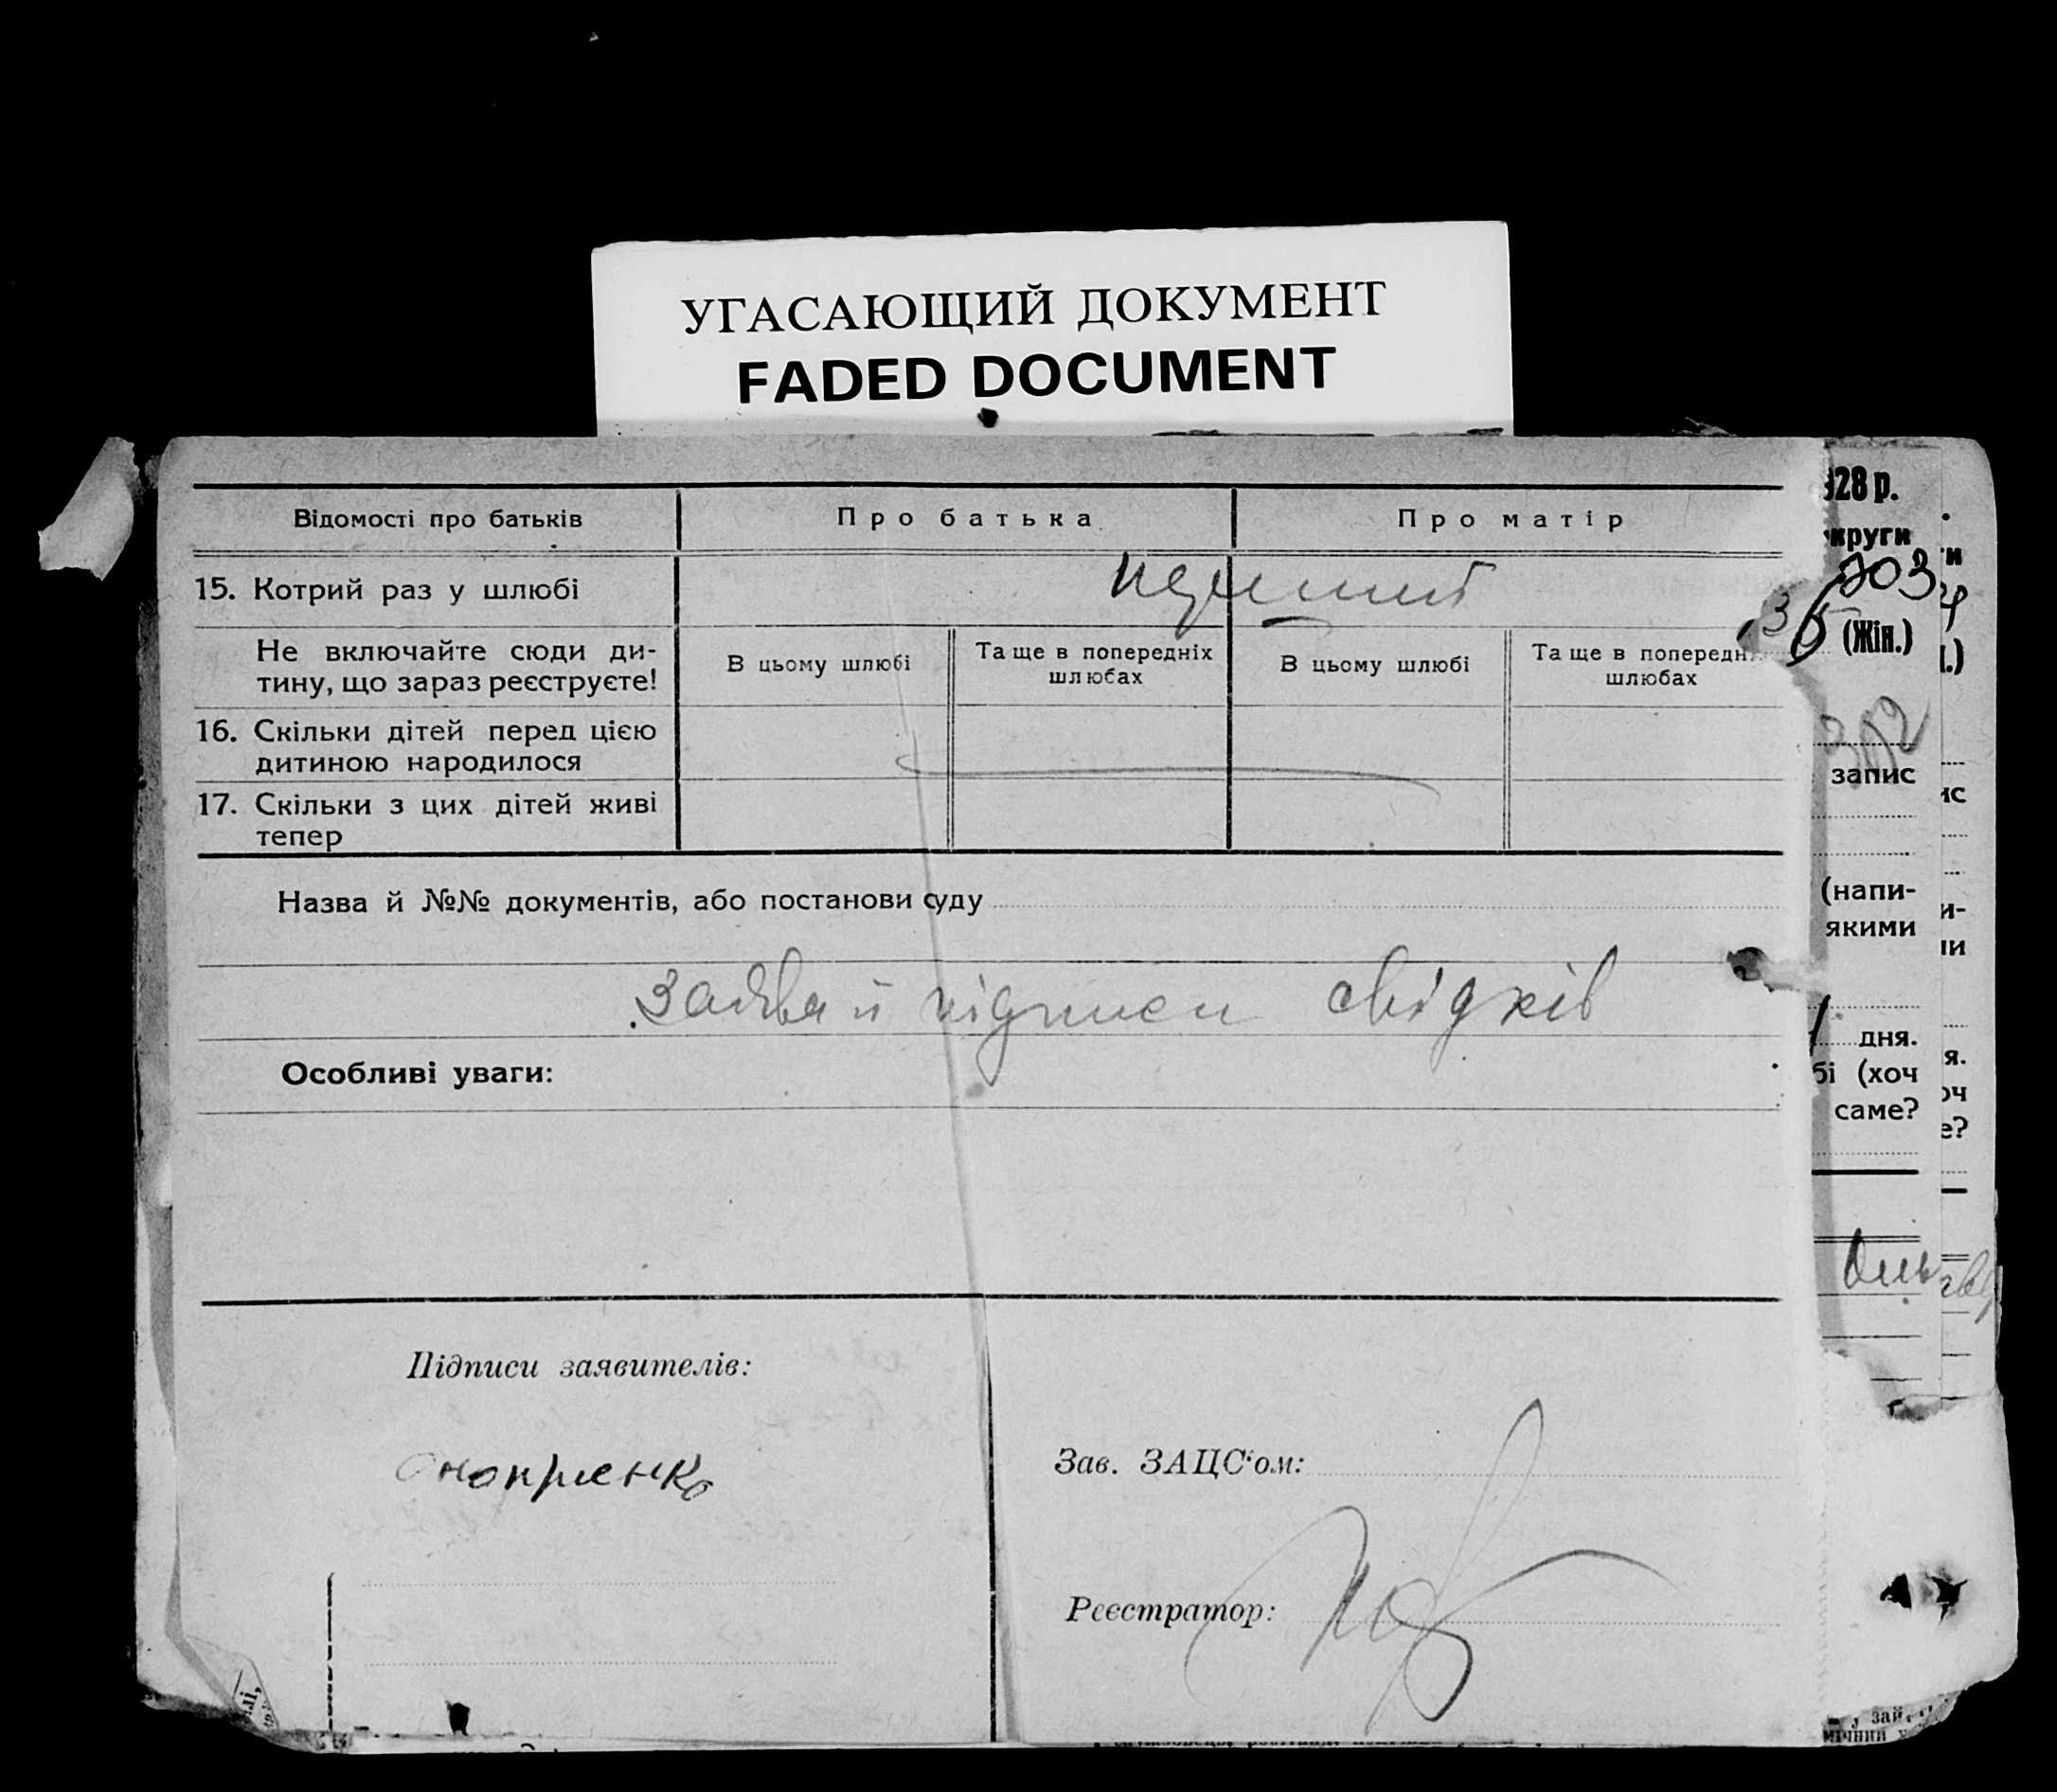 УГАСАЮЩИЙ ДОКУМЕНТ
FADED DOCUMENT
Відомості про батьків
Про батька
Про матір
15. Котрий раз у шлюбі
перший
Не включайте сюди ди-
тину, що зараз реєструєте!
В цьому шлюбі
Та ще в попередніх
шлюбах
В цьому шлюбі
Та ще в попередн
шлюбах
16. Скільки дітей перед цією
дитиною народилося
17. Скільки з цих дітей живі
тепер
Назва й №№ документів, або постанови суду
заява й підписи свідків
Особливі уваги:
Підписи заявителів:
Оноприенко
Зав. ЗАЦС‘ом:
Реєстратор:
928 р.
круги
203
36 (Жін.)
запис
(напи-
якими
дня.
бі (хоч
саме?